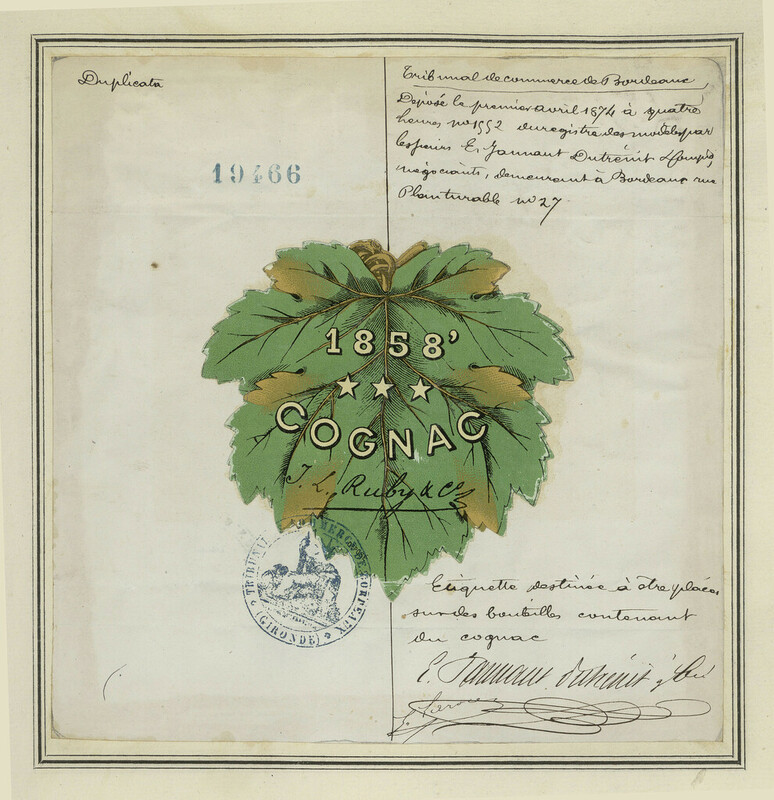 Duplicata
19466
Tribunal de commerce de Bordeaux
Déposé le premier avril 1874 à quatre
heures no 1552 du registre des modèles par
les sieurs E. Jannaut Dutrénit
négociants, demeurant à Bordeaux rue
Planturable no 27
1858'
COGNAC
J. L. Ruby & Co
TRIBUNAL COMMERCE DE BORDEAUX
(GIRONDE)
Etiquette destinée à être placée
sur des bouteilles contenant
du cognac
E. Jannaut Dutrénit